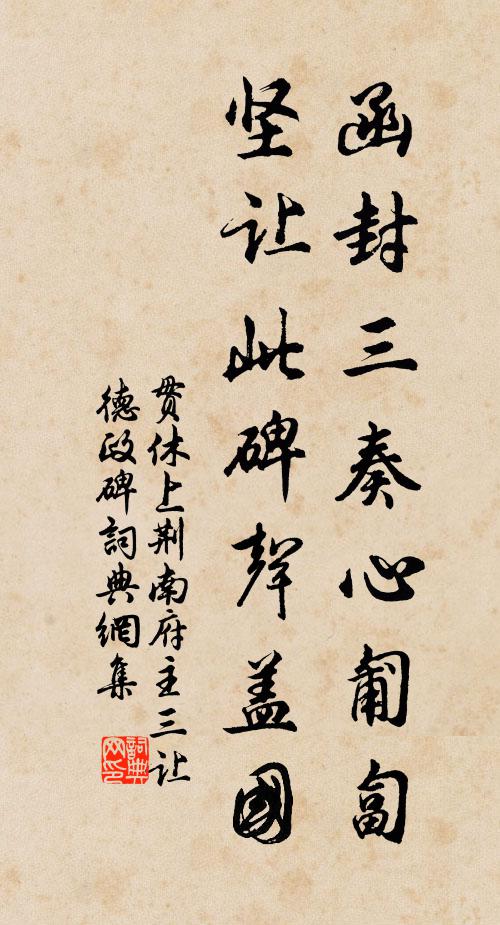 函封三奏心匍匐
坚让此碑聲盖國
贯休上荆南府主三让
德政碑詞典網集
詞典网印